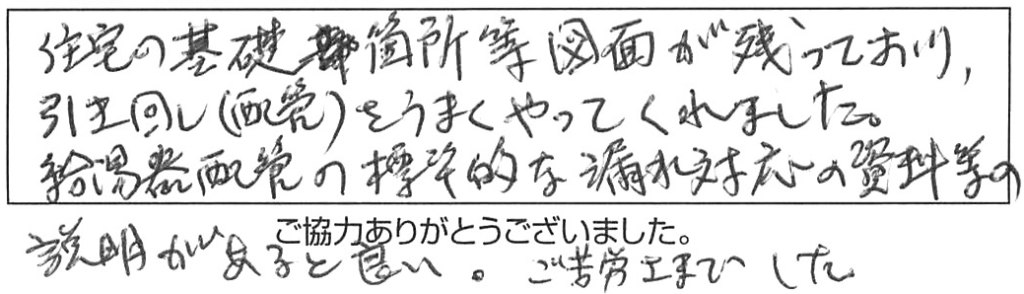 住宅の基礎箇所等図面が残っており,
引き回し(配管)をうまくやってくれました。
給湯器配管の標準的な漏れ対応の資料等の
ご協力ありがとうございました。
説明があると良い。ご苦労さまでした